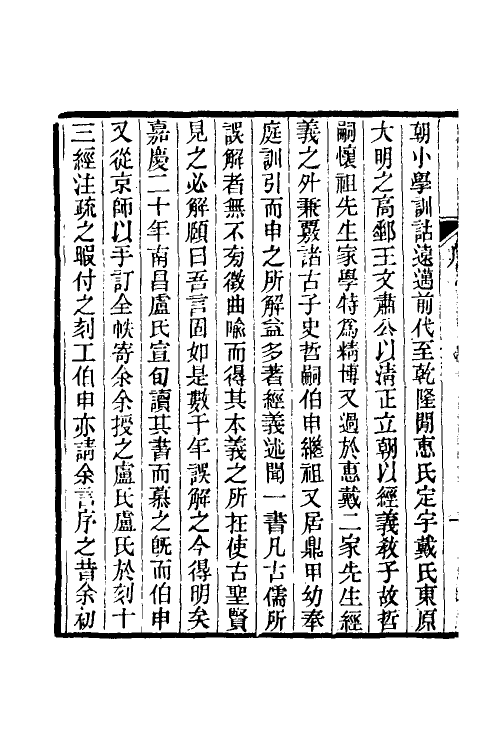 朝小學訓詁遠邁前代至乾隆閒惠氏定宇戴氏東原
大明之高郵王文肅公以淸正立朝以經義敎子故哲
嗣懷祖先生家學特爲精博又過於惠戴二家先生經
義之外兼覈諸古子史哲嗣伯申繼祖又居鼎甲幼奉
庭訓引而申之所解益多著經義述聞一書凡古儒所
誤解者無不㫄徵曲喻而得其本義之所在使古聖賢
見之必解頤曰吾言固如是數千年誤解之今得明矣
嘉慶二十年南昌盧氏宣旬讀其書而慕之旣而伯申
又從京師以手訂全帙寄余余授之盧氏盧氏於刻十
三經注疏之暇付之刻工伯申亦請余言序之昔余初